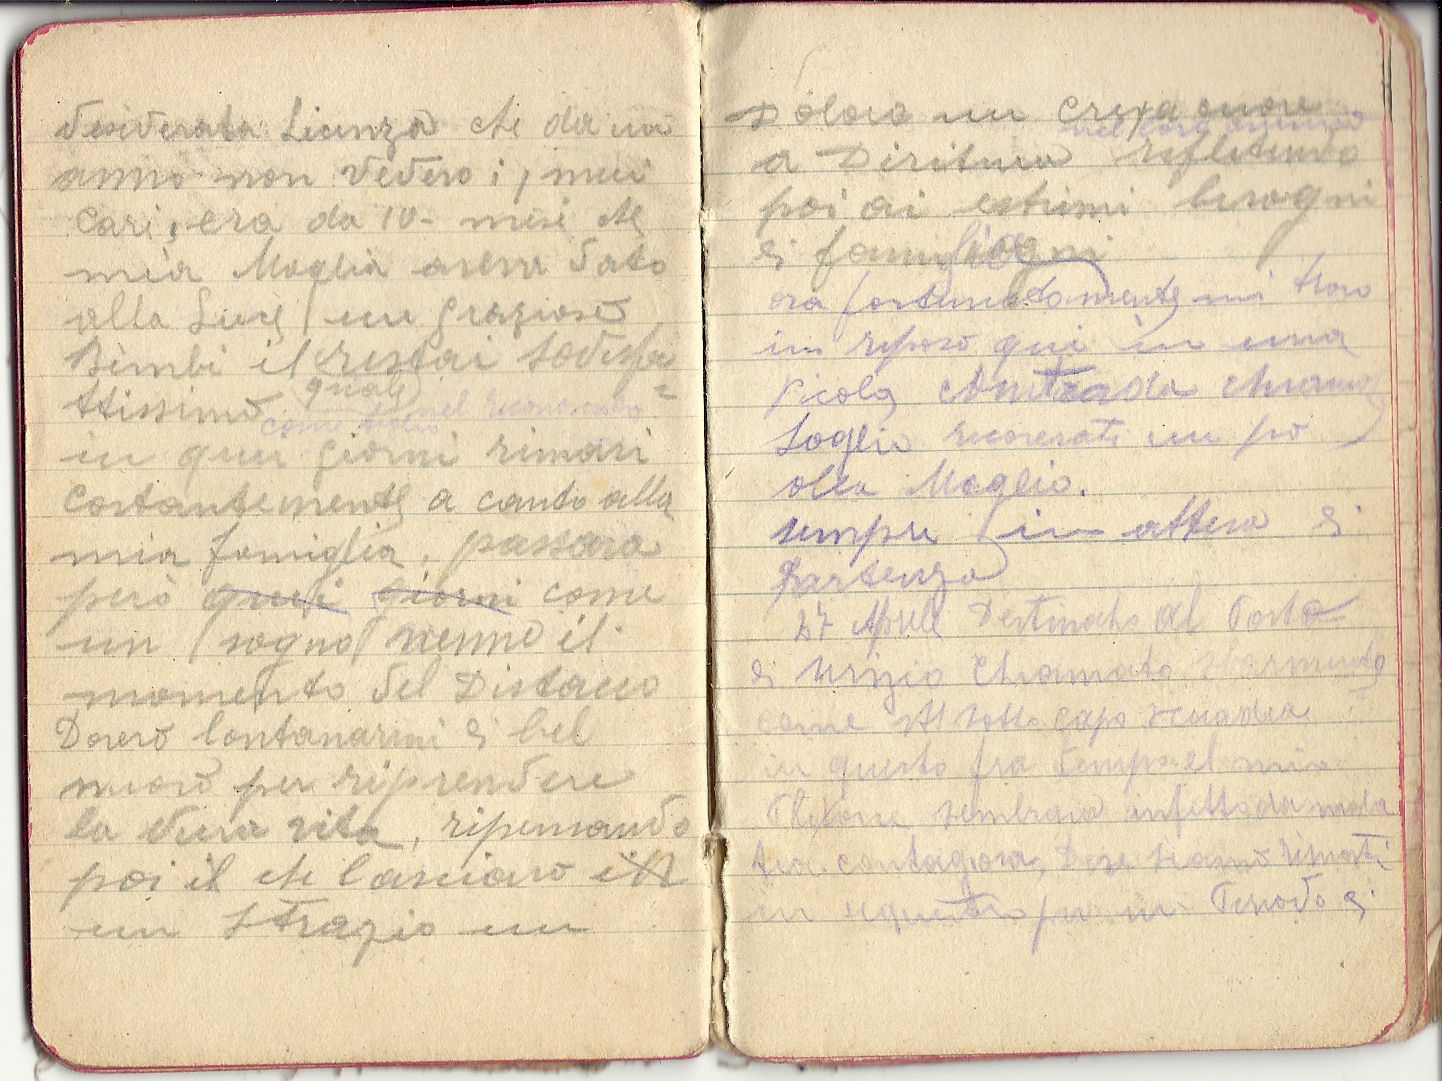 desiderata Licenza che da un
anno non vedevo i, miei
Cari, era da 10- mesi che
mia Moglia aveva dato
alla Luce un grazioso
Bimbi il restai sodisfa=
quale
ttissimo come nel
in quei giorni rimasi
costantemente a canto alla
mia famiglia, passava
però quei giorni come
un sogno venne il
momento del Distacco
Dovero lontanarmi di bel
nuovo per riprendere
la dura vita, ripensando
poi il che lasciavo
un Strazio un
Dolora un Crepa cuore
nel loro
a Diritura rifletendo
poi ai estremi besogni
di famiglia
ora fortunatamente mi trovo
in riposo qui in una
Picola Contrada chiamo
Soglio ricoverati un pò
alla Meglio.
sempre in attesa di
Partenza
27 Aprile Destinato al Posto
di servizio Chiamato
come capo
in questo fra tempo el mio
Plotone sembrava infetto da mala
tia contagiosa, Dove siamo rimasti
in per un Periodo di